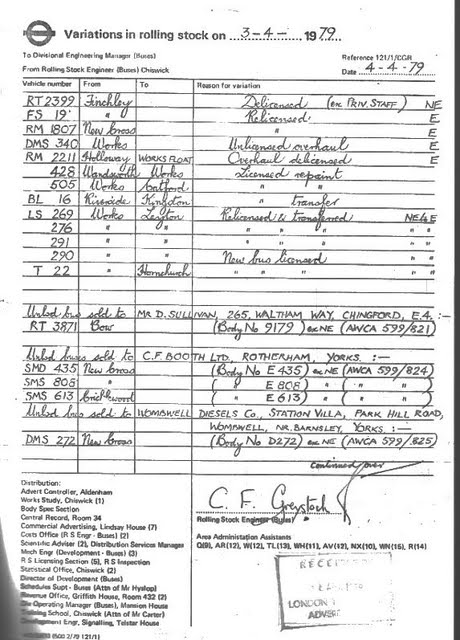 Variations in rolling stock on 3-4- 1979
To Divisional Engineering Manager (Buses)
Reference 121/1/CGR
From Rolling Stock Engineer (Buses) Chiswick
Date 4-4-79
Vehicle number From To Reason for variation
RT 2399 Finchley Delicensed (ex PRIV. STAFF) NE
FS 19 " Relicensed E
RM 1807 New Cross " E
DMS 340 Works Unlicensed overhaul E
RM 2211 Holloway WORKS FLOAT Overhaul delicensed E
428 Wandsworth Works Licensed repaint
505 Works Catford " "
BL 16 Riverside Kingston " transfer
LS 269 Works Leyton Relicensed & transferred NE&E
276 " " " " " " "
291 " " " " " " "
290 " " New bus licensed " "
T 22 " Hornchurch " " " "
Unlcd bus sold to MR D. SULLIVAN, 265, WALTHAM WAY, CHINGFORD, E.4. :—
RT 3871 Bow (Body No 9179) ex NE (AWCA 599/821)
Unlcd buses sold to C.F. BOOTH LTD., ROTHERHAM, YORKS. :—
SMD 435 New Cross (Body No E 435) ex NE (AWCA 599/824)
SMS 808 " ( " E 808 ) " ( " )
SMS 613 Cricklewood ( " E 613 ) " ( " )
Unlcd bus sold to WOMBWELL DIESELS Co., STATION VILLA, PARK HILL ROAD,
WOMBWELL, NR. BARNSLEY, YORKS. :—
DMS 272 New Cross (Body No D272) ex NE (AWCA 599/825)
Continued over
Distribution:
Advert Controller, Aldenham
Works Study, Chiswick (1)
Body Spec Section
Central Record, Room 34
Commercial Advertising, Lindsay House (7)
Costs Office (R S Engr - Buses) (2)
Scientific Adviser (2), Distribution Services Manager
Mech Engr (Development - Buses) (3)
R S Licensing Section (5), R S Inspection
Statistical Office, Chiswick (2)
Director of Development (Buses)
Schedules Supt - Buses (Attn of Mr Hyslop)
Revenue Office, Griffith House, Room 432 (2)
Operating Manager (Buses), Mansion House
Training School, Chiswick (Attn of Mr Carter)
Development Engr, Signalling, Telstar House
C. F. Greystock
Rolling Stock Engineer (Buses)
Area Administration Assistants
Q(9), AR(12), W(12), TL(13), WH(11), AV(12), NX(10), WN(15), R(14)
RECEIVED
LONDON
ADVERT
2/79 121/1